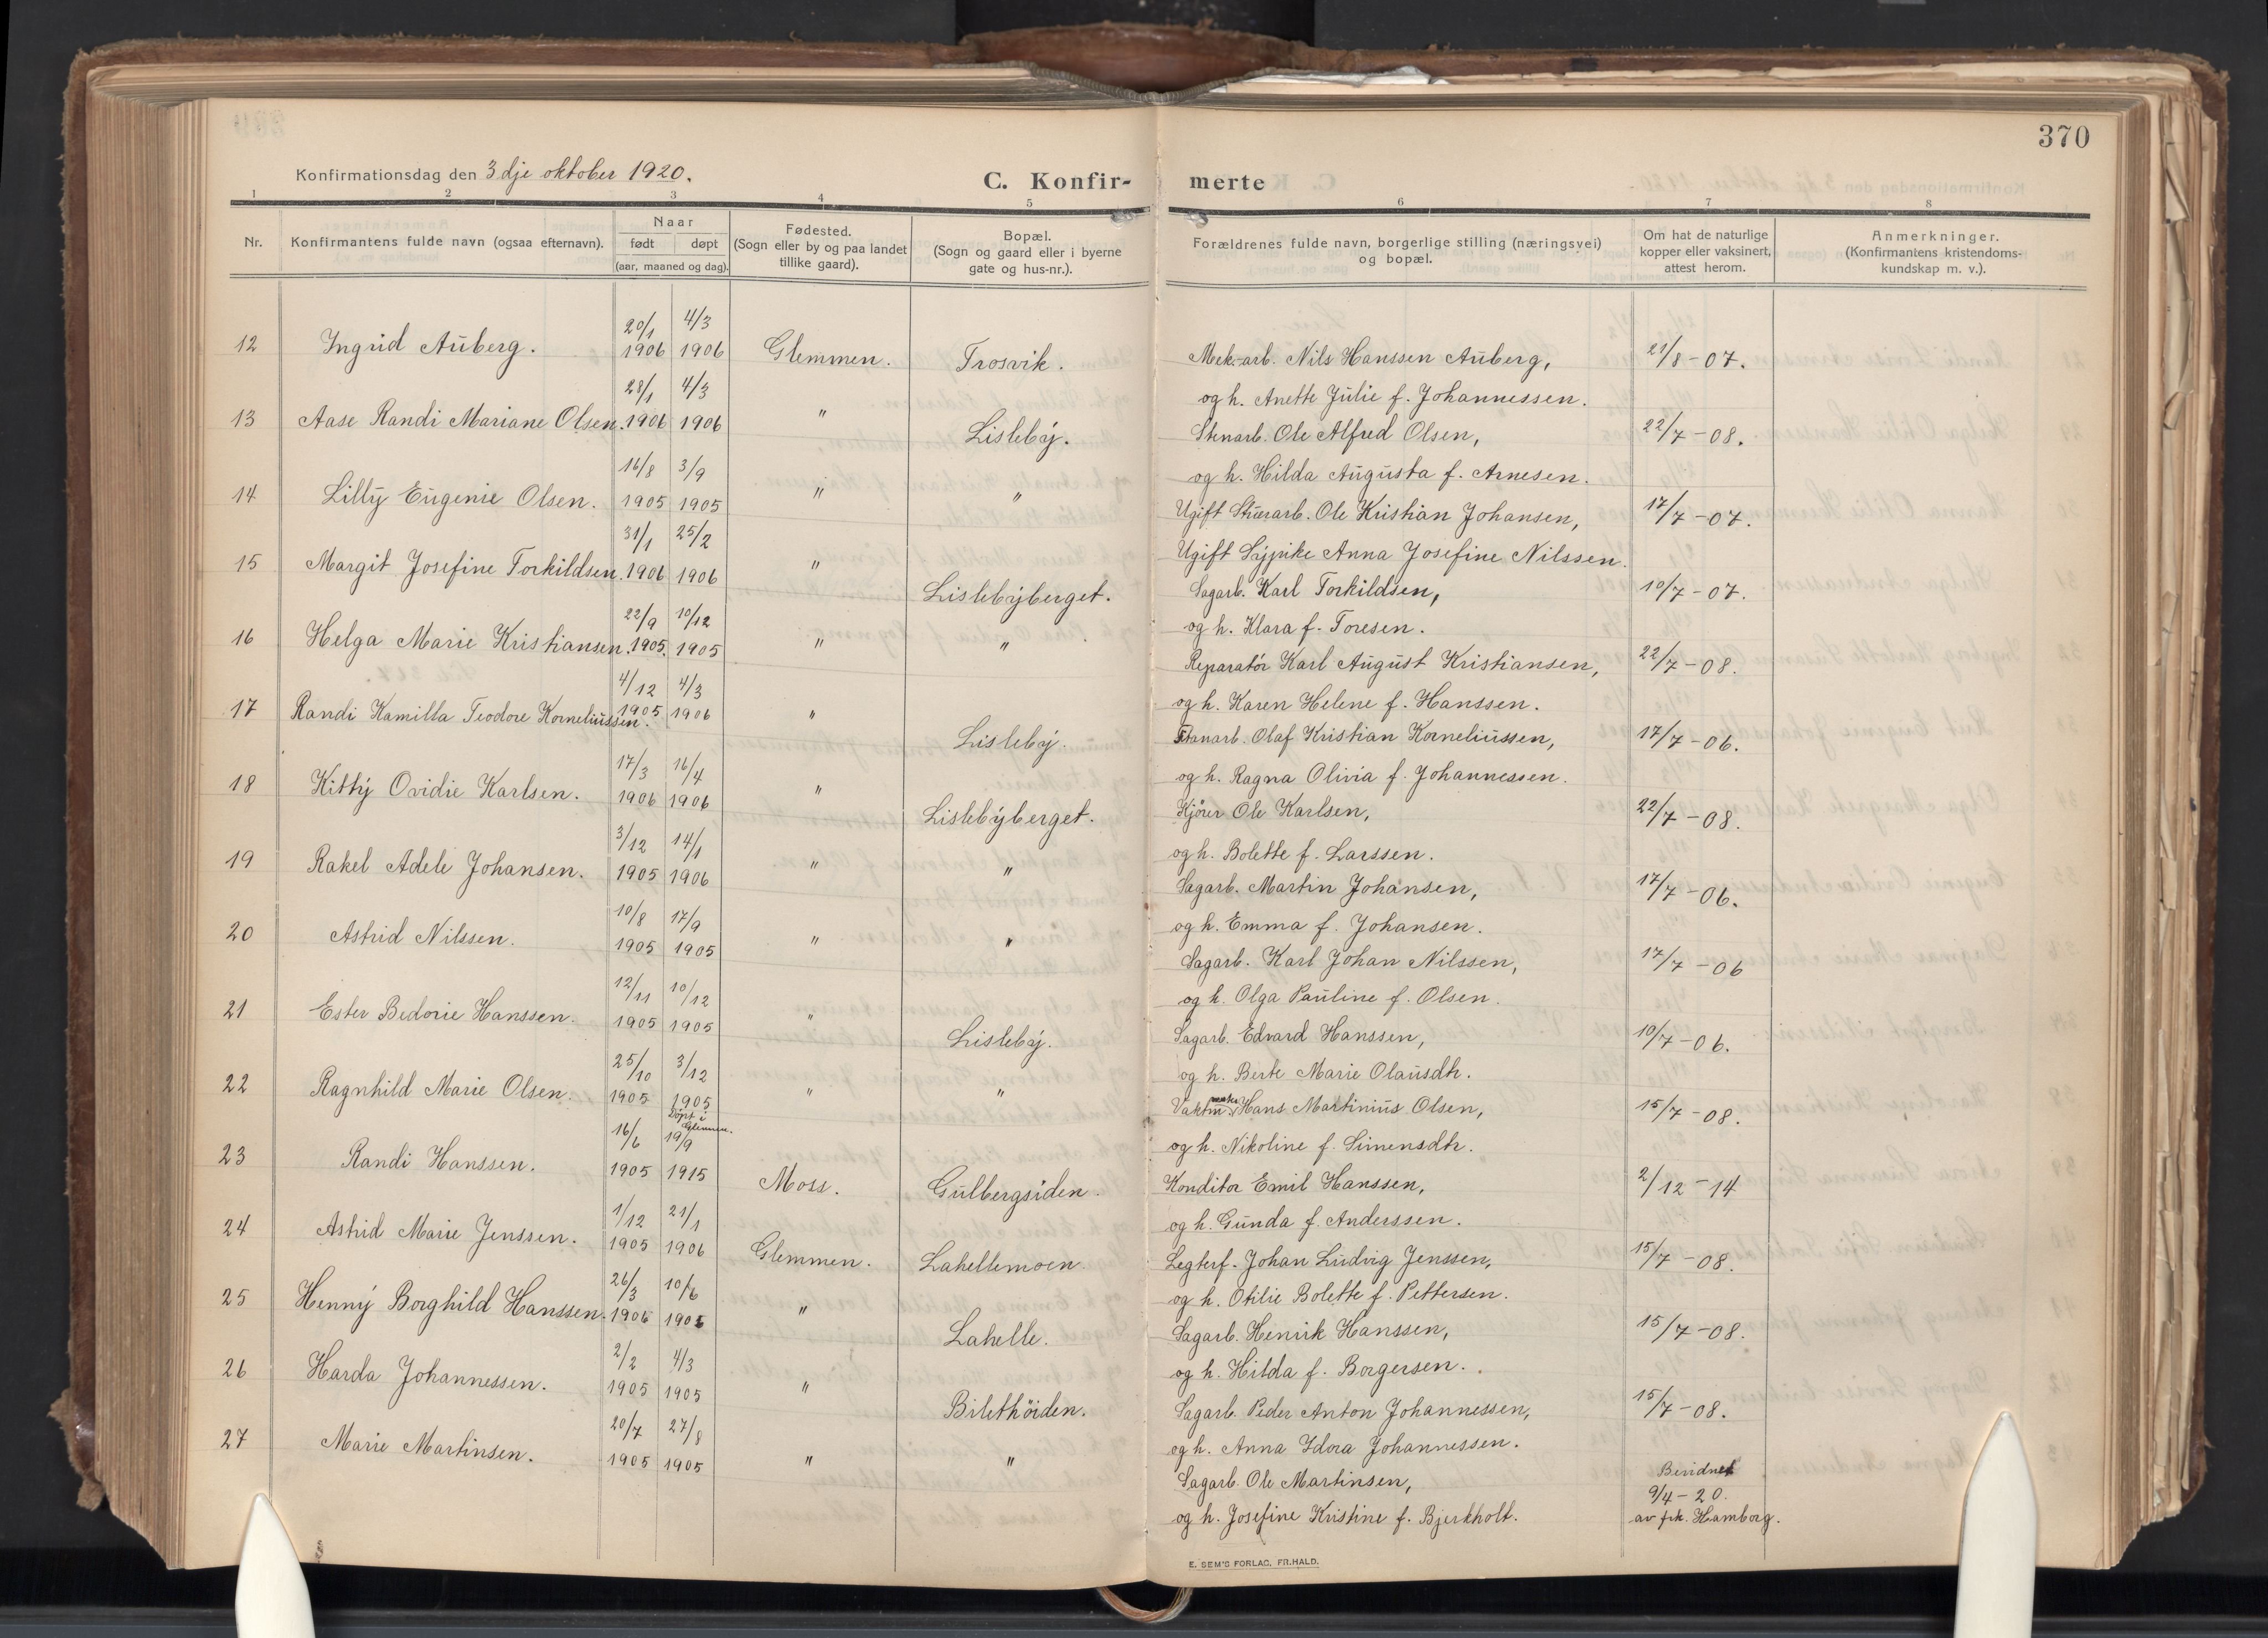 370
Konfirmationsdag den 3dje oktober 1920.
C. Konfir- merte
1 2 3 4 5 6 7 8
Nr. Konfirmantens fulde navn (ogsaa efternavn). Naar født døpt (aar, maaned og dag). Fødested. (Sogn eller by og paa landet tillike gaard). Bopæl. (Sogn og gaard eller i byerne gate og hus-nr.). Forældrenes fulde navn, borgerlige stilling (næringsvei) og bopæl. Om hat de naturlige kopper eller vaksinert, attest herom. Anmerkninger. (Konfirmantens kristendoms- kundskap m. v.).
12 Ingrid Auberg. 20/1 1906 4/3 1906 Glemmen. Trosvik. Mek.-arb. Nils Hanssen Auberg, 21/8-07.
og h. Anette Julie f. Johannessen.
13 Aase Randi Mariane Olsen. 28/1 1906 4/3 1906 " Lisleby. Stenarb. Ole Alfred Olsen, 22/7-08.
og h. Hilda Augusta f. Arnesen.
14 Lilly Eugenie Olsen. 16/8 1905 3/9 1905 " " Ugift Stuerarb. Ole Kristian Johansen, 17/7-07.
Ugift Sypike Anna Josefine Nilssen.
15 Margit Josefine Torkildsen. 31/1 1906 25/2 1906 " Lislebyberget. Sagarb. Karl Torkildsen, 10/7-07.
og h. Klara f. Toresen.
16 Helga Marie Kristiansen. 22/9 1905. 10/12 1905 " " Reparatör Karl August Kristiansen, 22/7-08.
og h. Karen Helene f. Hanssen.
17 Randi Kamilla Teodore Korneliussen. 4/12 1905 4/3 1906 " Lisleby. Olaf Kristian Korneliussen, 17/7-06.
og h. Ragna Olivia f. Johannessen.
18 Kitty Ovidie Karlsen. 17/3 1906 16/4 1906 " Lislebyberget. Kjörer Ole Karlsen, 22/7-08.
og h. Bolette f. Larssen.
19 Rakel Adele Johansen. 3/12 1905 14/1 1906 " " Sagarb. Martin Johansen, 17/7-06.
og h. Emma f. Johansen.
20 Astrid Nilssen. 10/8 1905 17/9 1905 " " Sagarb. Karl Johan Nilssen, 17/7-06
og h. Olga Pauline f. Olsen.
21 Ester Bedorie Hanssen. 12/11 1905 10/12 1905 " Lisleby. Sagarb. Edvard Hanssen, 10/7-06.
og h. Berte Marie Olausdtr.
22 Ragnhild Marie Olsen. 25/10 1905 3/12 1905 " " Hans Martinius Olsen, 15/7-08.
og h. Nikoline f. Simensdtr.
23 Randi Hanssen. 16/6 1905 Döpt i Glemmen. 19/9 1915 Moss. Gulbergsiden. Konditor Emil Hanssen, 2/12-14
og h. Gunda f. Anderssen.
24 Astrid Marie Jenssen. 1/12 1905 21/1 1906 Glemmen. Lahellemoen Legterf. Johan Ludvig Jenssen, 15/7-08.
og h. Otilie Bolette f. Pettersen.
25 Henny Borghild Hanssen. 26/3 1906 10/6 1906 " Lahelle. Sagarb. Henrik Hanssen, 15/7-08.
og h. Hilda f. Borgersen.
26 Harda Johannessen. 2/2 1905 4/3 1905 " Bilethöiden. Sagarb. Peder Anton Johannessen, 15/7-08.
og h. Anna Idora Johannessen.
27 Marie Martinsen. 20/7 1905 27/8 1905 " " Sagarb. Ole Martinsen, Bevidnet 9/4-20.
og h. Josefine Kristine f. Bjerkholt. av frk. Hamborg.
E. SEM'S FORLAG, FR.HALD.